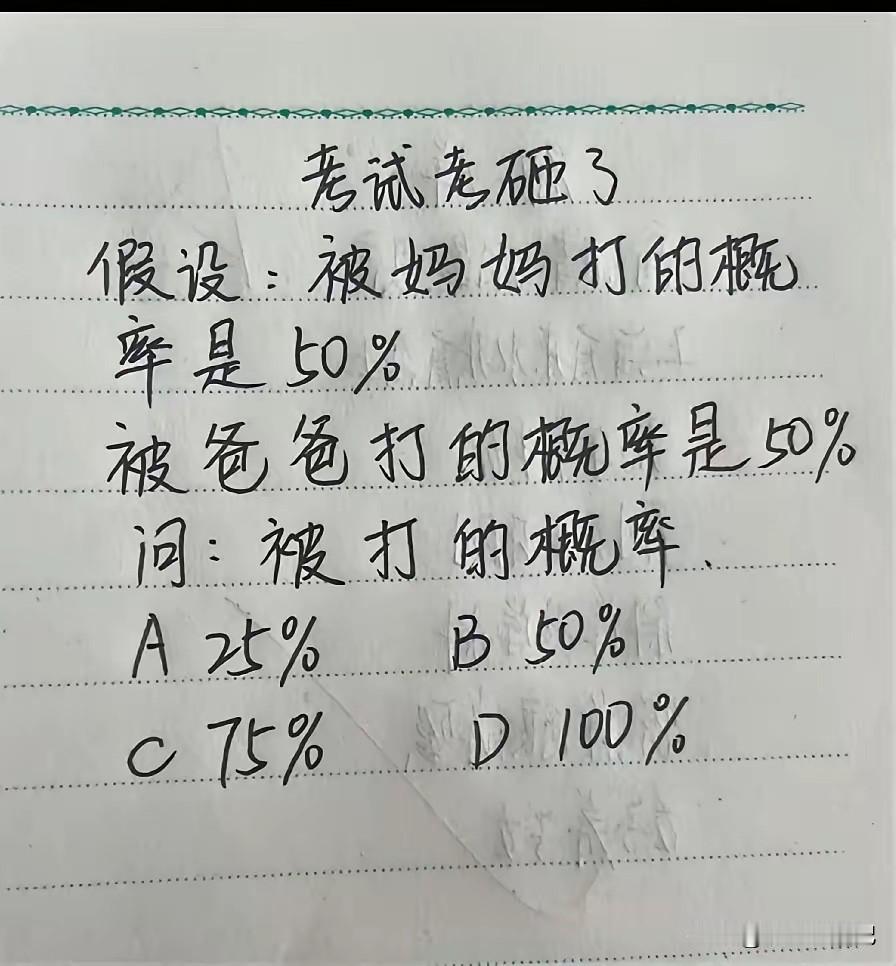 考试考砸了
假设：被妈妈打的概
率是50%
被爸爸打的概率是50%
问：被打的概率.
A 25%  B 50%
C 75%  D 100%